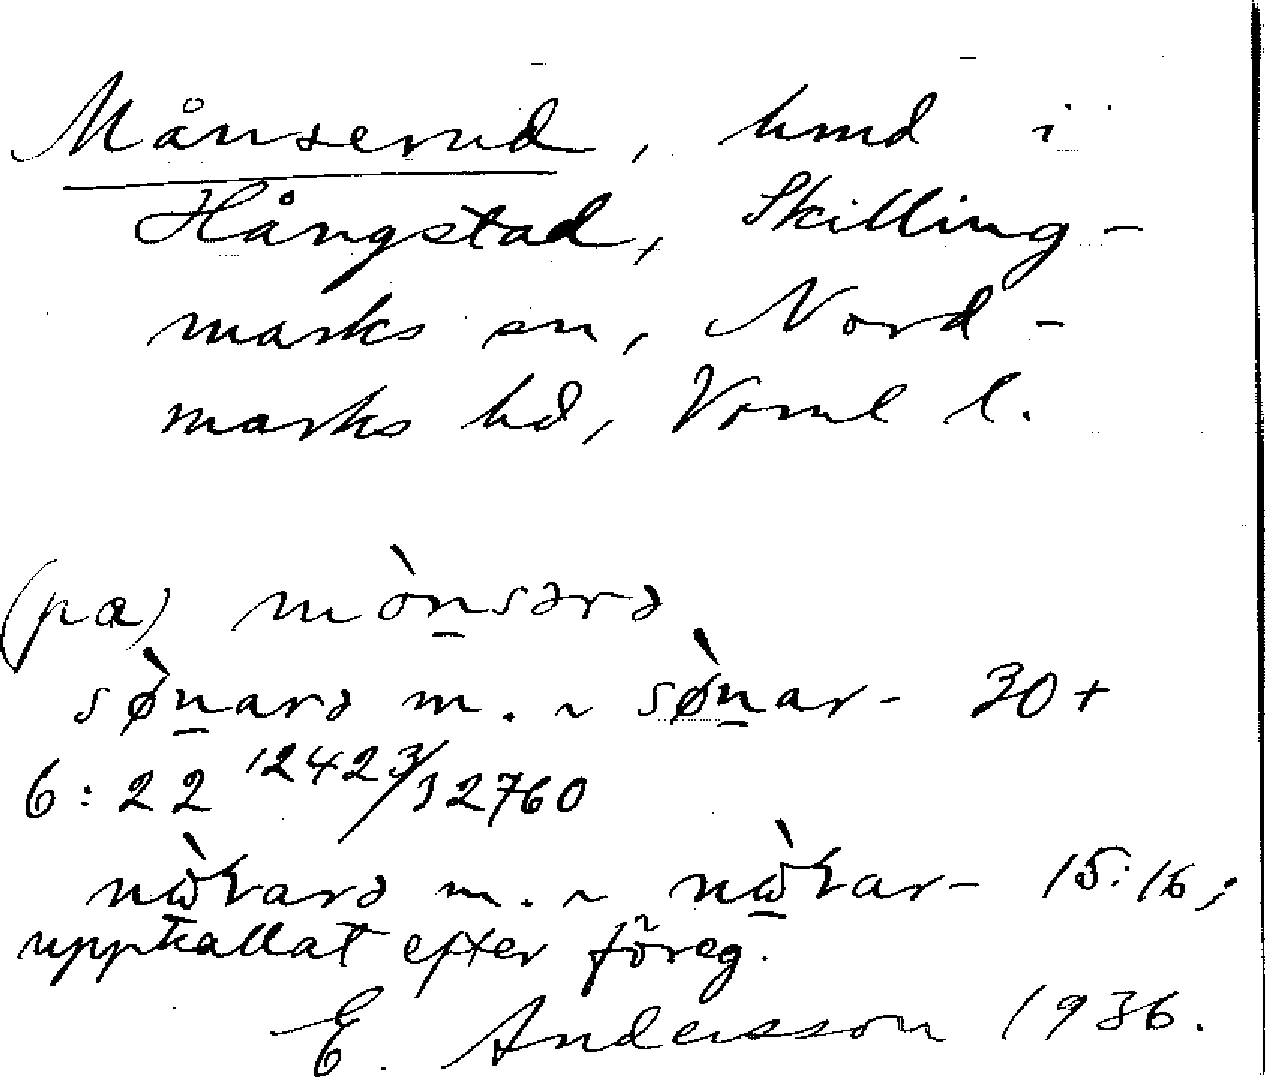 Månserud, hmd i
Hångstad, Skilling-
marks sn, Nord-
marks hd, Vrml l.
(pa) mòn̠sərə
sø̀n̠arə m. ~ sø̀n̠ar- 30+
6:22 12423/32760
nὼkarə m. ~ nὼkar- 15:16;
uppkallat efter föreg.
E. Andersson 1936.